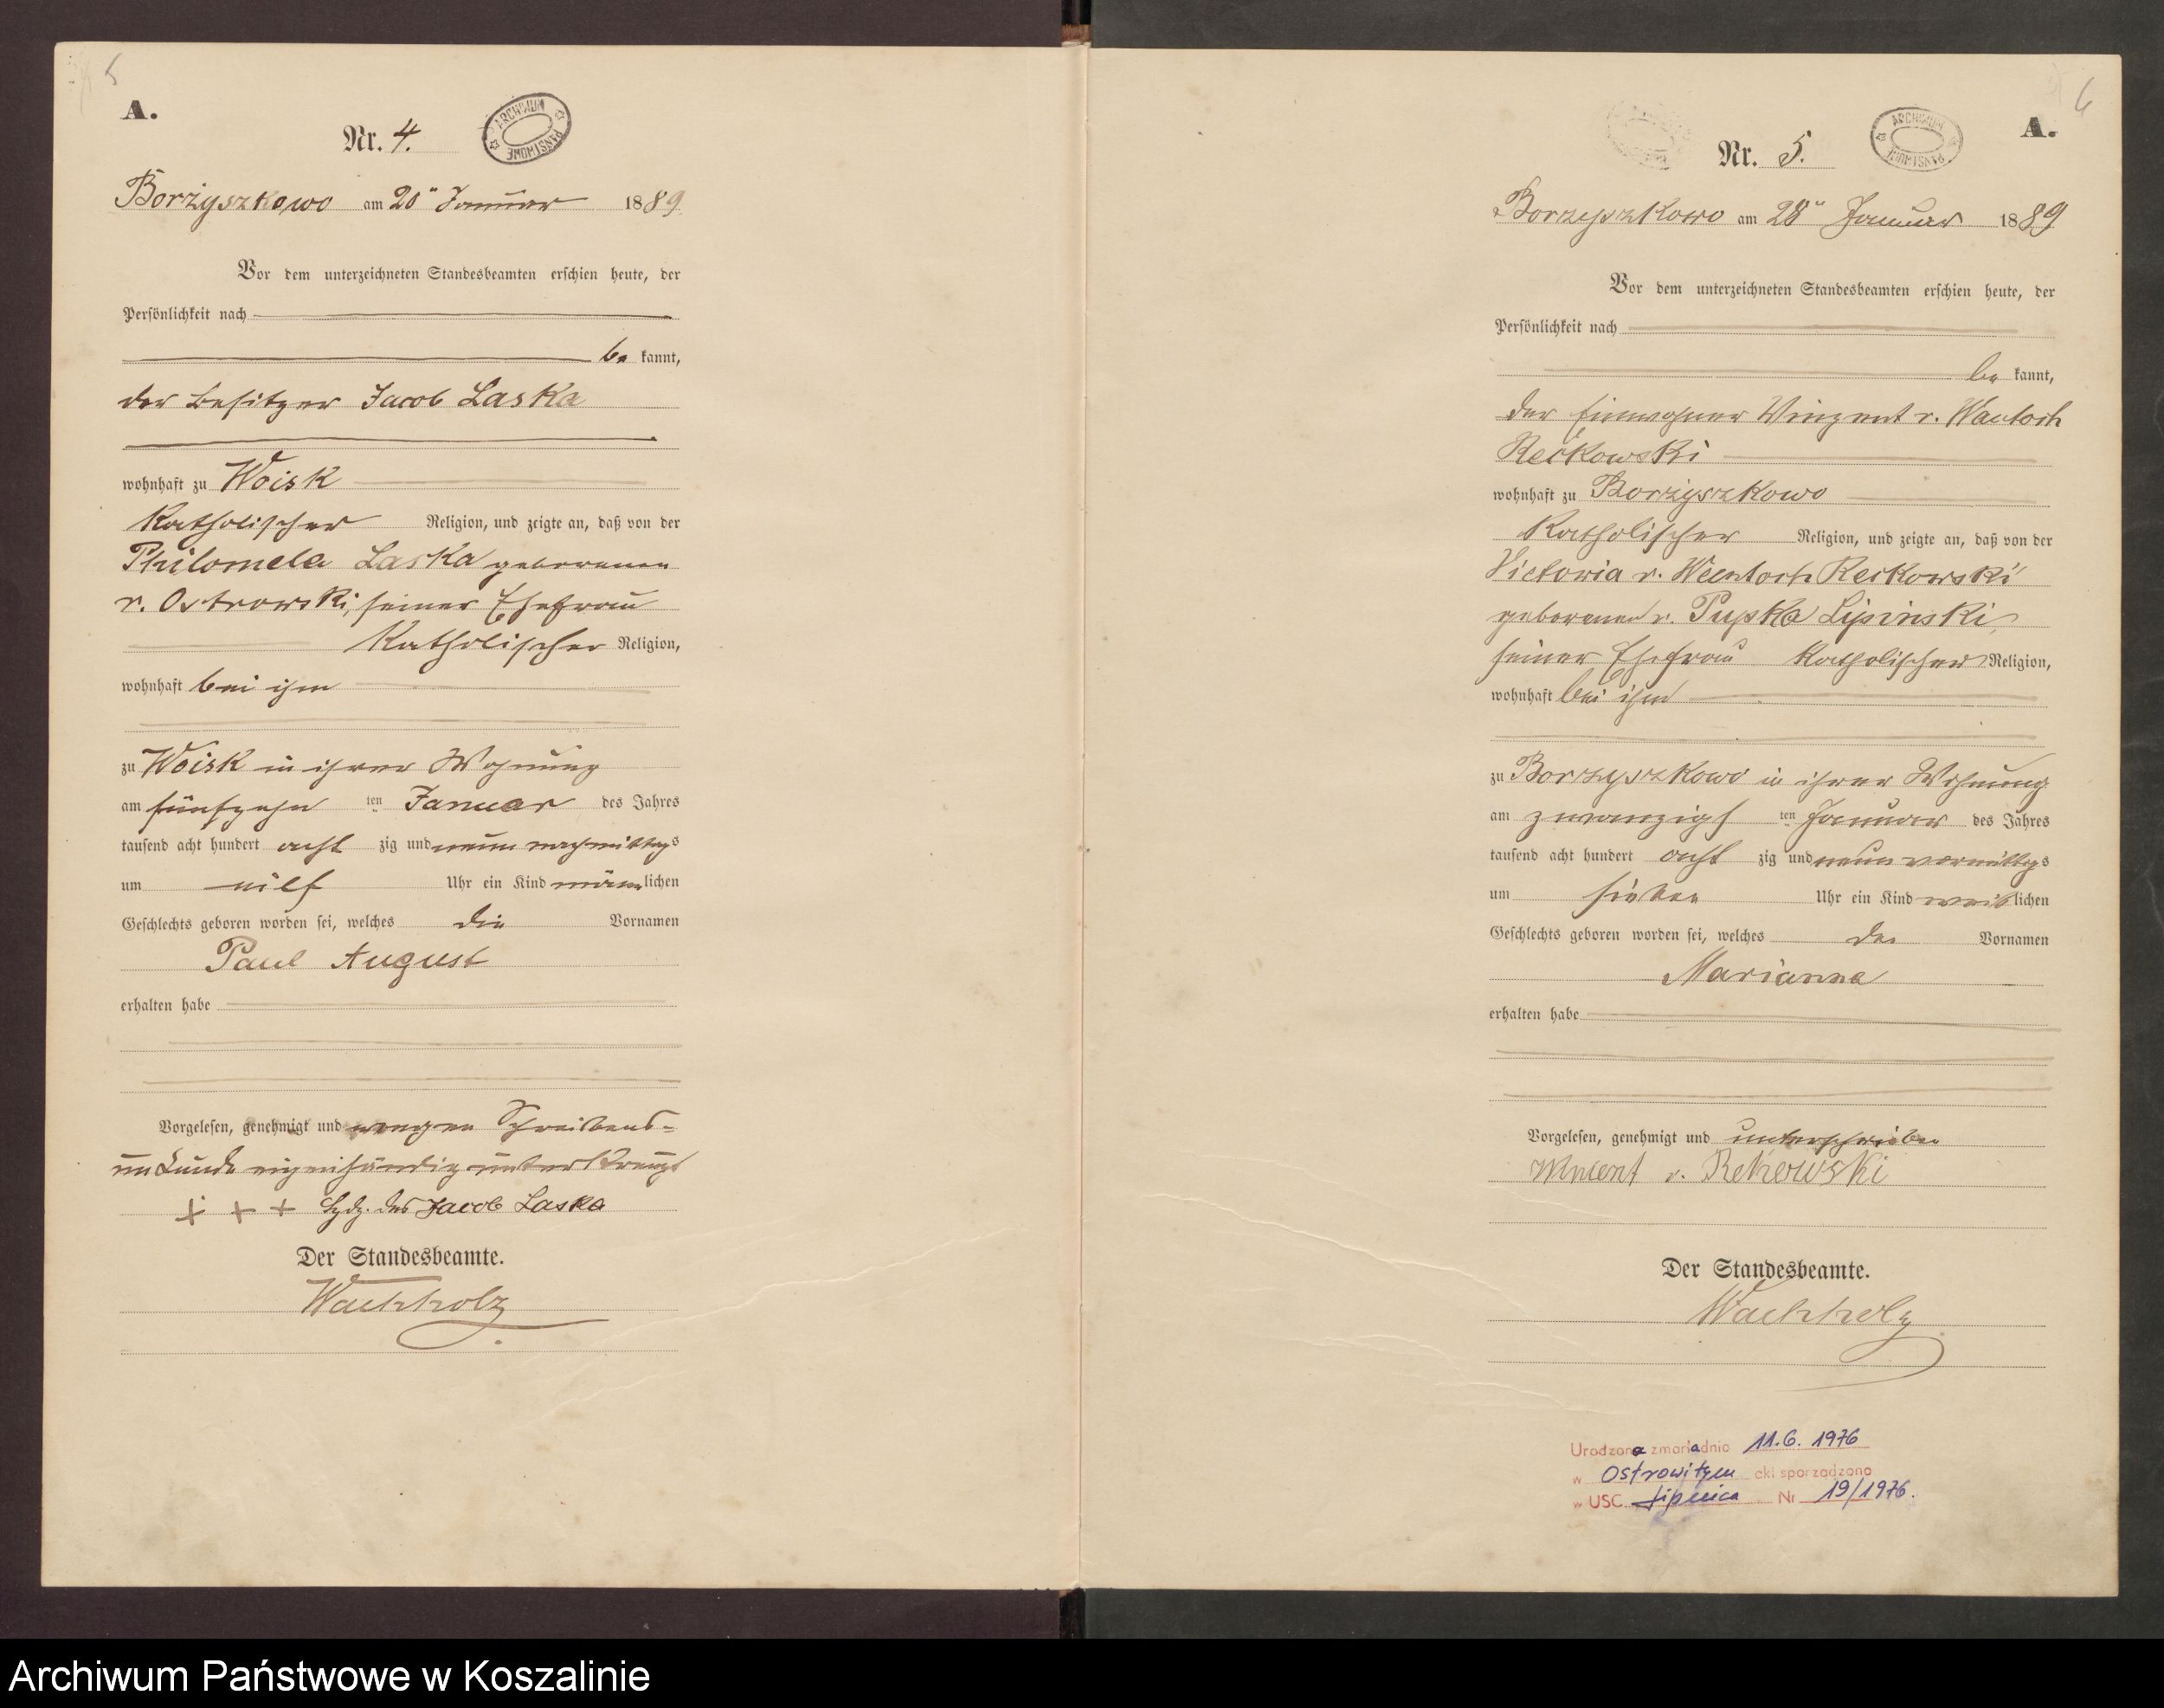 5
A.
Nr. 4.
ARCHIWUM PAŃSTWOWE
Borżyszkowo am 20" Januar 1889
Vor dem unterzeichneten Standesbeamten erschien heute, der
Persönlichkeit nach
be kannt,
der Besitzer Jacob Laska
wohnhaft zu Woisk
Katholischer Religion, und zeigte an, daß von der
Philomela Laska geborenen
v. Ostrowski, seiner Ehefrau
Katholischer Religion,
wohnhaft bei ihm
zu Woisk in ihrer Wohnung
am fünfzehn ten Januar des Jahres
tausend acht hundert acht zig und neun nachmittags
um eilf Uhr ein Kind männlichen
Geschlechts geboren worden sei, welches die Vornamen
Paul August
erhalten habe
Vorgelesen, genehmigt und wegen Schreibens-
unkunde eigenhändig unterkreuzt
+ + + Hdz. des Jacob Laska
Der Standesbeamte.
Wachholz
6
A.
Nr. 5.
ARCHIWUM PAŃSTWOWE
Borzyszkowo am 28" Januar 1889
Vor dem unterzeichneten Standesbeamten erschien heute, der
Persönlichkeit nach
be kannt,
der Einwohner Vinzent v. Wantoch
Reckowski
wohnhaft zu Borzyszkowo
Katholischer Religion, und zeigte an, daß von der
Victoria v. Wantoch Reckowski
geborenen v. Pupka Lipinski,
seiner Ehefrau Katholischer Religion,
wohnhaft bei ihm
zu Borzyszkowo in ihrer Wohnung
am zwanzigs ten Januar des Jahres
tausend acht hundert acht zig und neun vormittags
um sieben Uhr ein Kind weiblichen
Geschlechts geboren worden sei, welches den Vornamen
Marianna
erhalten habe
Vorgelesen, genehmigt und unterschrieben
Vincent v. Rekowski
Der Standesbeamte.
Wachholz
Urodzona zmarła dnia 11.6.1976
w Ostrowitem akt sporządzono
w USC Lipnica Nr 19/1976.
Archiwum Państwowe w Koszalinie